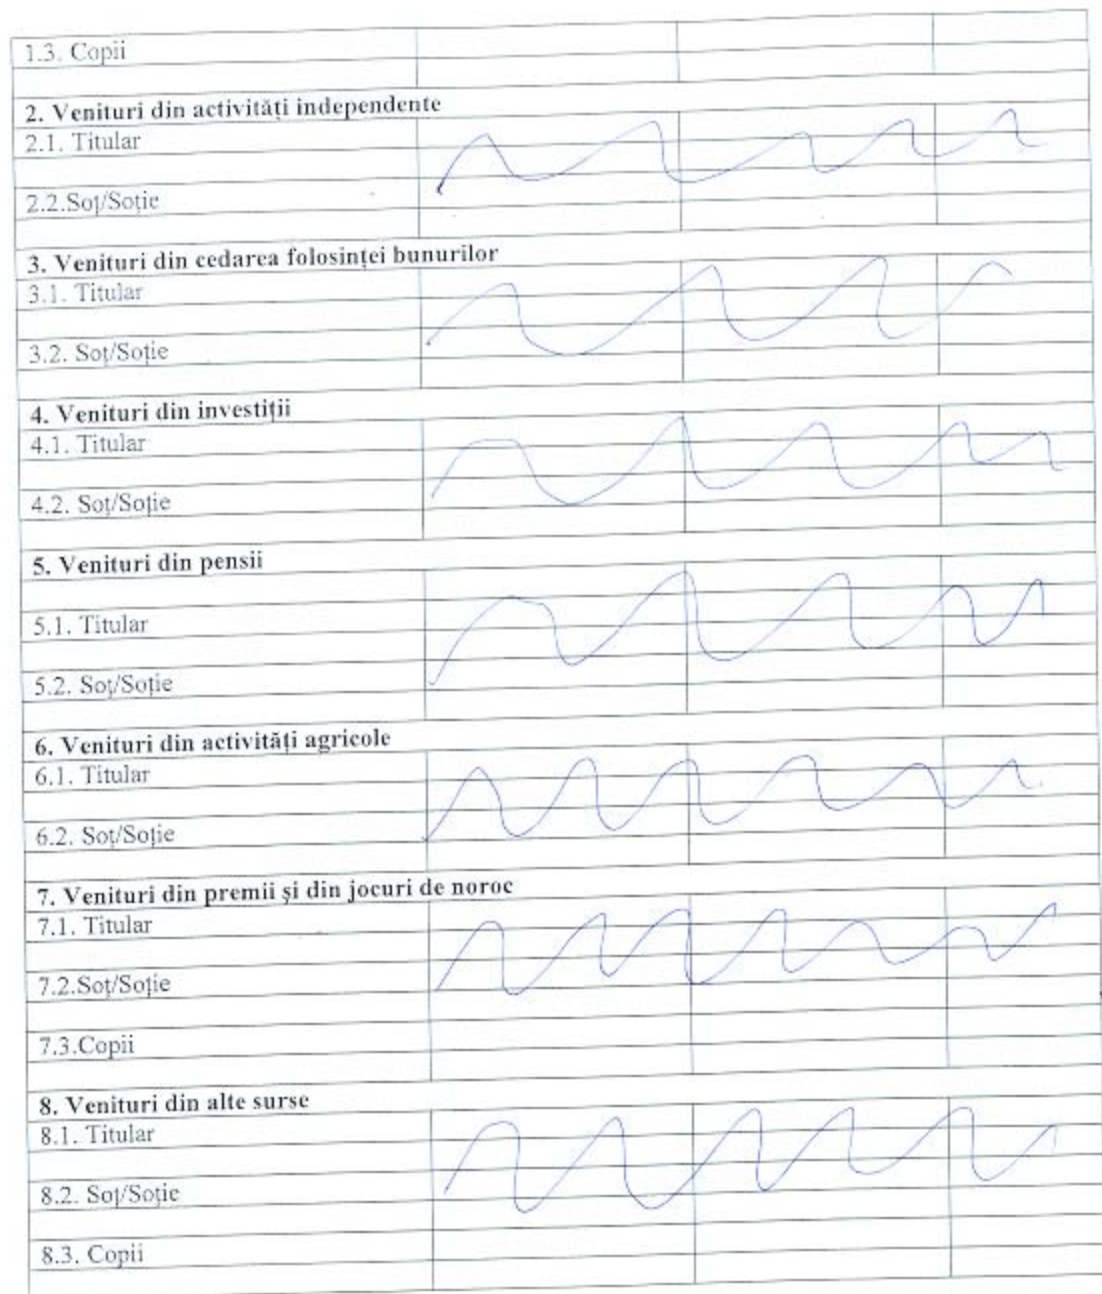 1.3. Copii
2. Venituri din activități independente
2.1. Titular
2.2.Soț/Soție
3. Venituri din cedarea folosinței bunurilor
3.1. Titular
3.2. Soț/Soție
4. Venituri din investiții
4.1. Titular
4.2. Soț/Soție
5. Venituri din pensii
5.1. Titular
5.2. Soț/Soție
6. Venituri din activități agricole
6.1. Titular
6.2. Soț/Soție
7. Venituri din premii și din jocuri de noroc
7.1. Titular
7.2.Soț/Soție
7.3.Copii
8. Venituri din alte surse
8.1. Titular
8.2. Soț/Soție
8.3. Copii